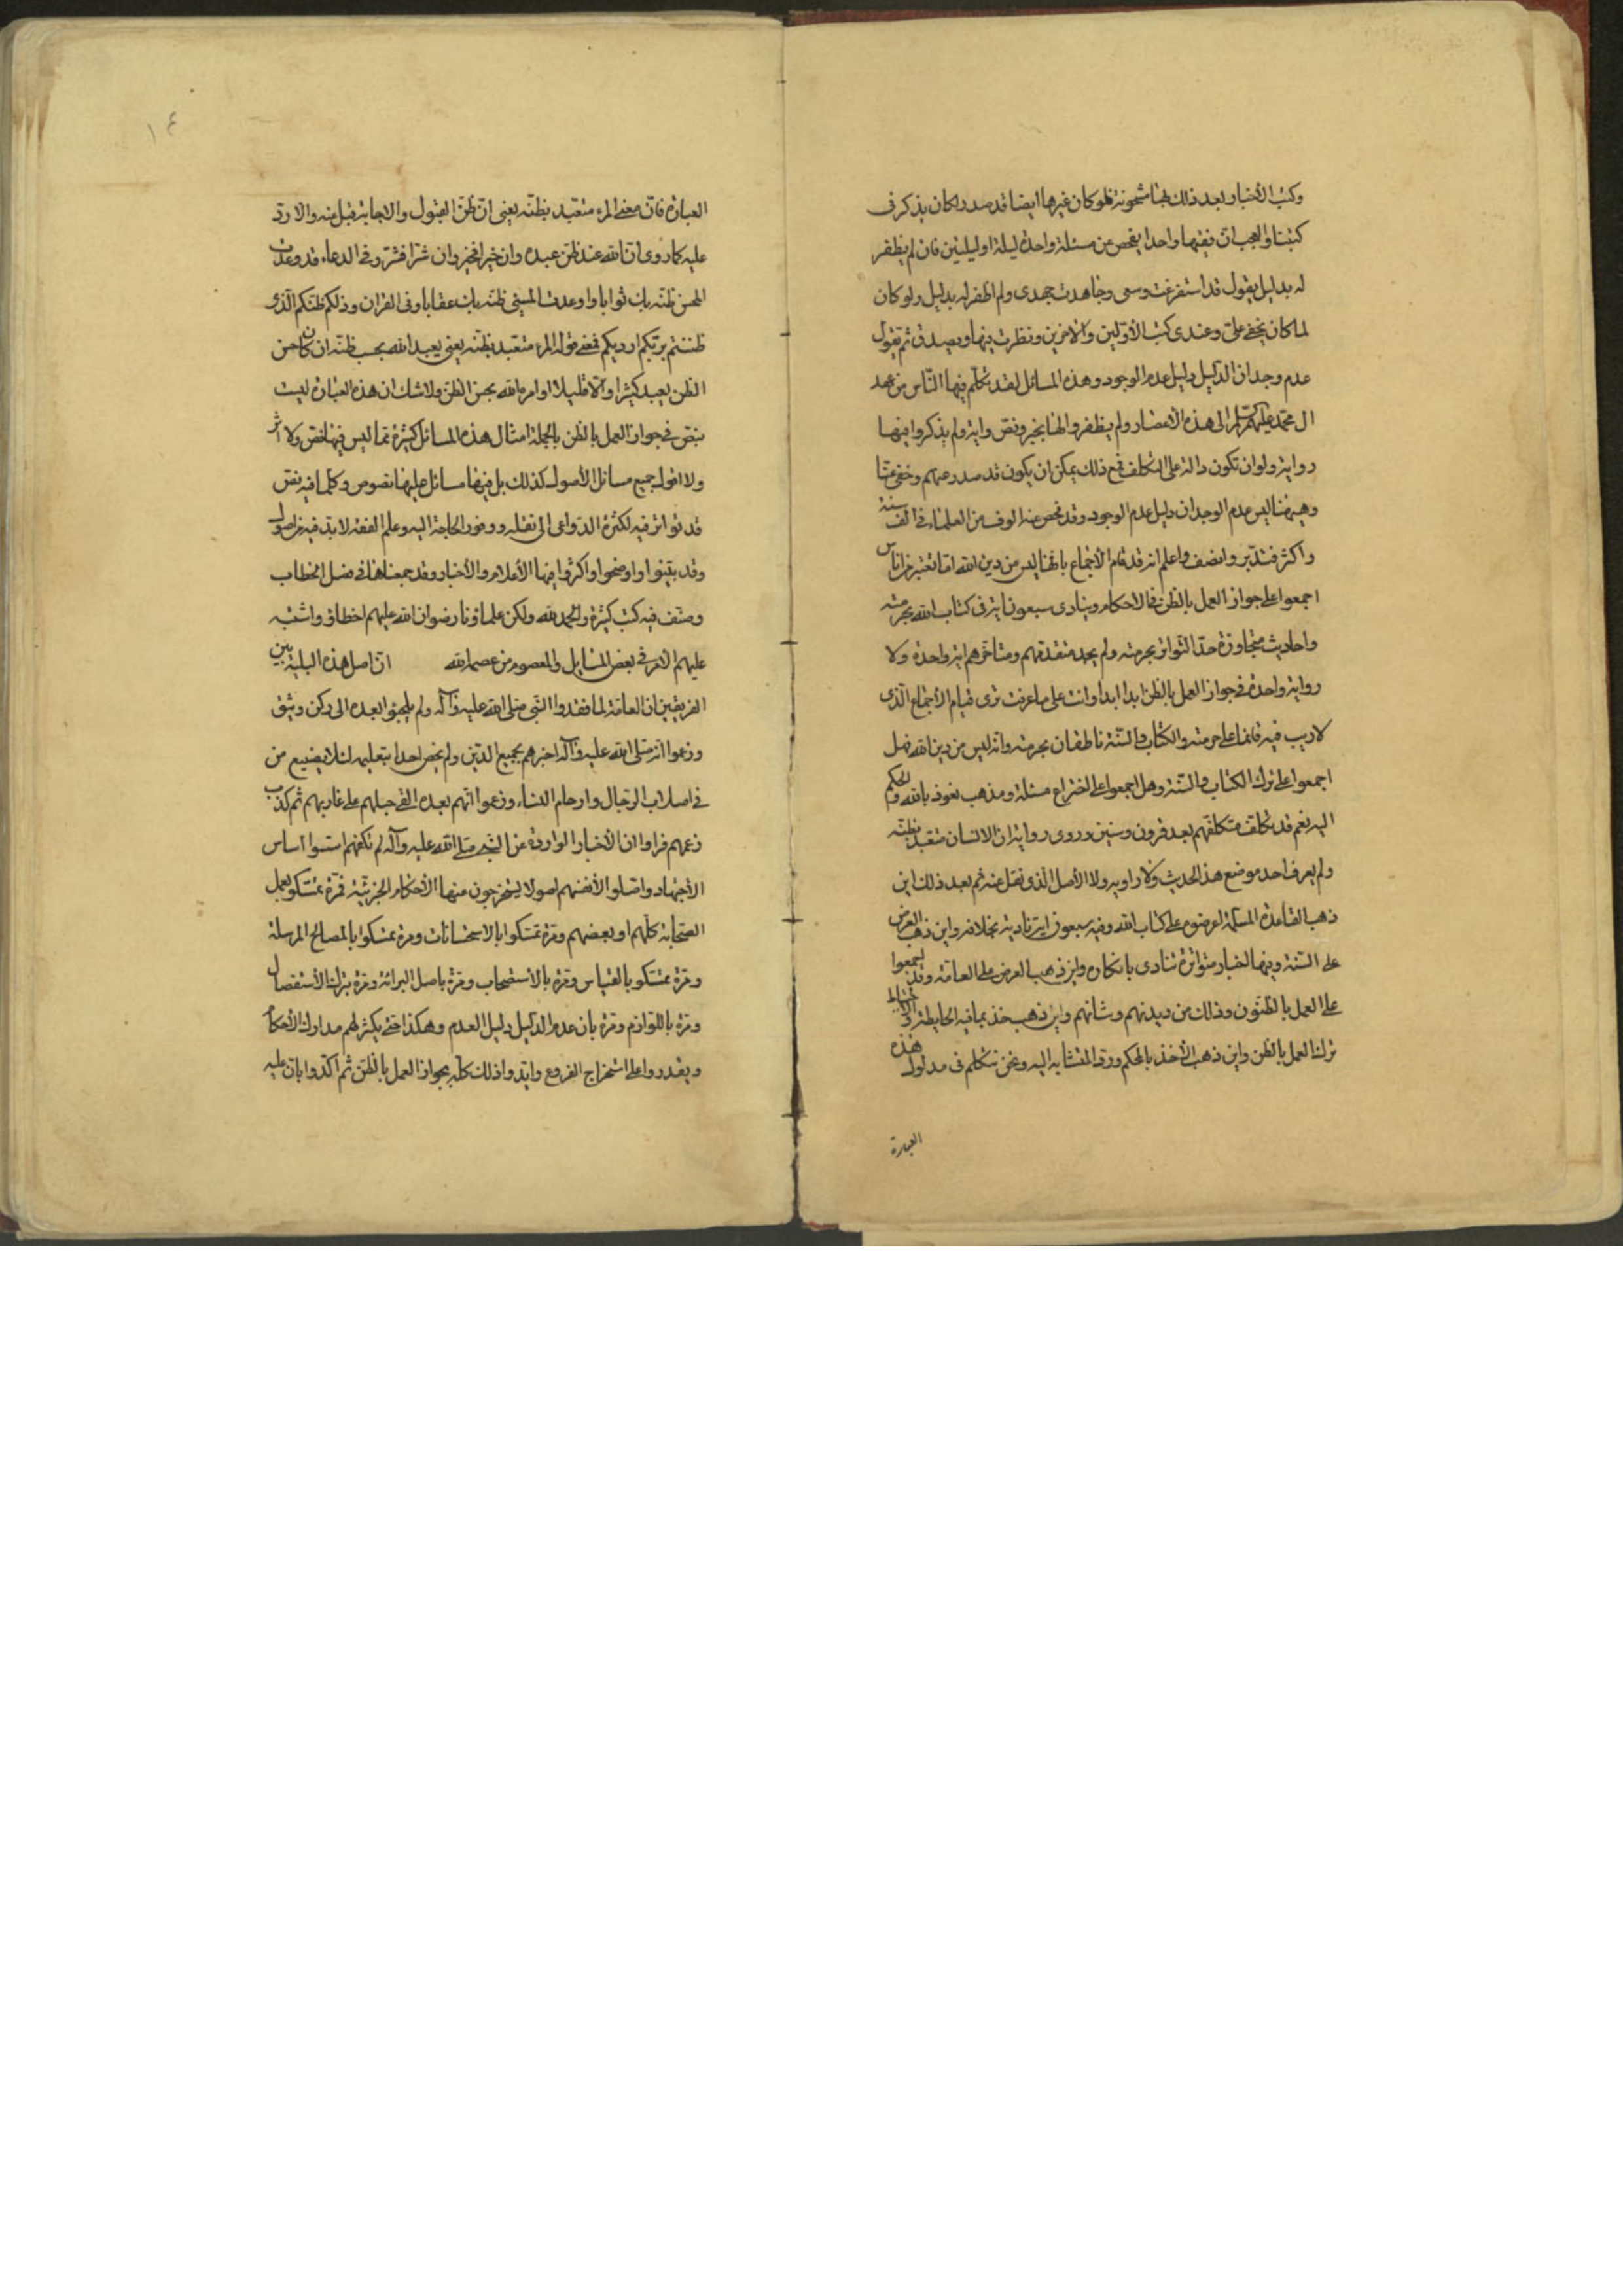 وكتب الأخبار بعد ذلك بها مشحونة فلو كان غيرها ايضا قد صدر لكان يذكر في
كتبنا والعجب ان فقيها واحدا يفحص عن مسئلة واحدة ليلة او ليلتين فان لم يظفر
له بدليل يقول قد استفرغت وسعى وجاهدت جهدى ولم اظفر له بدليل ولو كان
لما كان يخفى على وعندى كتب الأولين والآخرين ونظرت فيها ويصدق ثم يقول
عدم وجدان الدليل دليل عدم الوجود وهذه المسائل لقد تكلم فيها الناس من عهد
ال محمد عليهم السلم الى هذه الأعصار ولم يظفروا لها بخبر ونص واية ولم يذكروا فيها
رواية ولو ان تكون دالة على التكلف فمع ذلك يمكن ان يكون قد صدر عنهم وخفى عنا
وهيهنا ليس عدم الوجدان دليل عدم الوجود وقد فحص عنه الوف من العلماء في الف سنة
واكثر فتدبر وانصف واعلم انه قد قام الأجماع بانها ليس من دين الله اما تعتبر من اناس
اجمعوا على جواز العمل بالظن في الأحكام وينادى سبعون اية في كتاب الله بحرمته
واحاديث متجاوزة حد التواتر بحرمته ولم يجد متقدمهم ومتاخرهم اية واحدة ولا
رواية واحدة في جواز العمل بالظن ابدا ابدا وانت على ما عرفت ترى قيام الأجماع الذى
لا ريب فيه قائما على حرمته والكتاب والسنة ناطقان بحرمته وانه ليس من دين الله فهل
اجمعوا على ترك الكتاب والسنة وهل اجمعوا على اختراع مسئلة ومذهب نعوذ بالله والحكم
اليه نعم قد تكلف متكلفهم بعد قرون وسنين وروى رواية ان الانسان متعبد بظنه
ولم يعرف احد موضع هذا الحديث ولا راويه ولا الأصل الذى نقل عنه ثم بعد ذلك اين
ذهب القاعدة المسلمة اعرضوه على كتاب الله وفيه سبعون اية نادية بخلافه واين ذهب العرض
على السنة وفيها اخبار متواترة تنادى بانكاره واين ذهب العرض على العامة وقد اجمعوا
على العمل بالظنون وذلك من ديدنهم وشانهم واين ذهب خذ بما فيه الحايطة والاحتياط
ترك العمل بالظن واين ذهب الأخذ بالمحكم ورد المتشابه اليه ونحن نتكلم في مدلول هذه
العبارة
١٤
العبارة فان معنى المرء متعبد بظنه يعنى ان ظن القبول والاجابة قبل منه والا رد
عليه كما روى ان الله عند ظن عبده وان خيرا فخير وان شرا فشر وفي الدعاء قد وعدت
المحسن ظنه بك ثوابا واوعدت المسيئ ظنه بك عقابا وفي القران وذلكم ظنكم الذى
ظننتم بربكم ارديكم فمعنى قوله المرء متعبد بظنه يعنى يعبد الله بحسب ظنه ان كان حسن
الظن يعبد كثيرا والا قليلا او امره الله بحسن الظن ولا شك ان هذه العبارة ليست
بنص في جواز العمل بالظن بالجملة امثال هذه المسائل كثيرة مما ليس فيها نص ولا اثر
ولا اقول جميع مسائل الأصول كذلك بل فيها مسائل عليها نصوص وكلما فيه نص
قد تواتر فيه لكثرة الدواعى الى نقله ووفور الحاجة اليه وعلم الفقه لا بد فيه من اصول
وقد بينوا واوضحوا واكثروا فيها الأعلام والأخبار وقد جمعناها في فصل الخطاب
وصنف فيه كتب كثيرة والحمد لله ولكن علماؤنا رضوان الله عليهم اخطاؤ واشتبه
عليهم الامر في بعض المسايل والمعصوم من عصمه الله ان اصل هذه البلية بين
الفريقين ان العامة لما فقدوا النبى صلى الله عليه وآله ولم يلجئوا بعده الى ركن وثيق
وزعموا انه صلى الله عليه وآله اخبرهم بجميع الدين ولم يخص احدا بتعليمه لئلا يضيع من
في اصلاب الرجال وارحام النساء وزعموا انهم بعده القى حبلهم على غاربهم ثم كذب
زعمهم فراوا ان الأخبار الواردة عن النبى صلى الله عليه وآله لم تكفهم اسسوا اساس
الأجتهاد واصلوا لأنفسهم اصولا يستخرجون منها الأحكام الجزئية فمرة تمسكوا بعمل
الصحابة كلهم او بعضهم ومرة تمسكوا بالاستحسانات ومرة تمسكوا بالمصالح المرسلة
ومرة تمسكو بالقياس ومرة بالأستصحاب ومرة باصل البرائة ومرة بترك الأستفصال
ومرة باللوازم ومرة بان عدم الدليل دليل العدم وهكذا حتى يكثر لهم مدارك الأحكام
ويقدروا على استخراج الفروع وايدوا ذلك كله بجواز العمل بالظن ثم اكدوا بان عليه